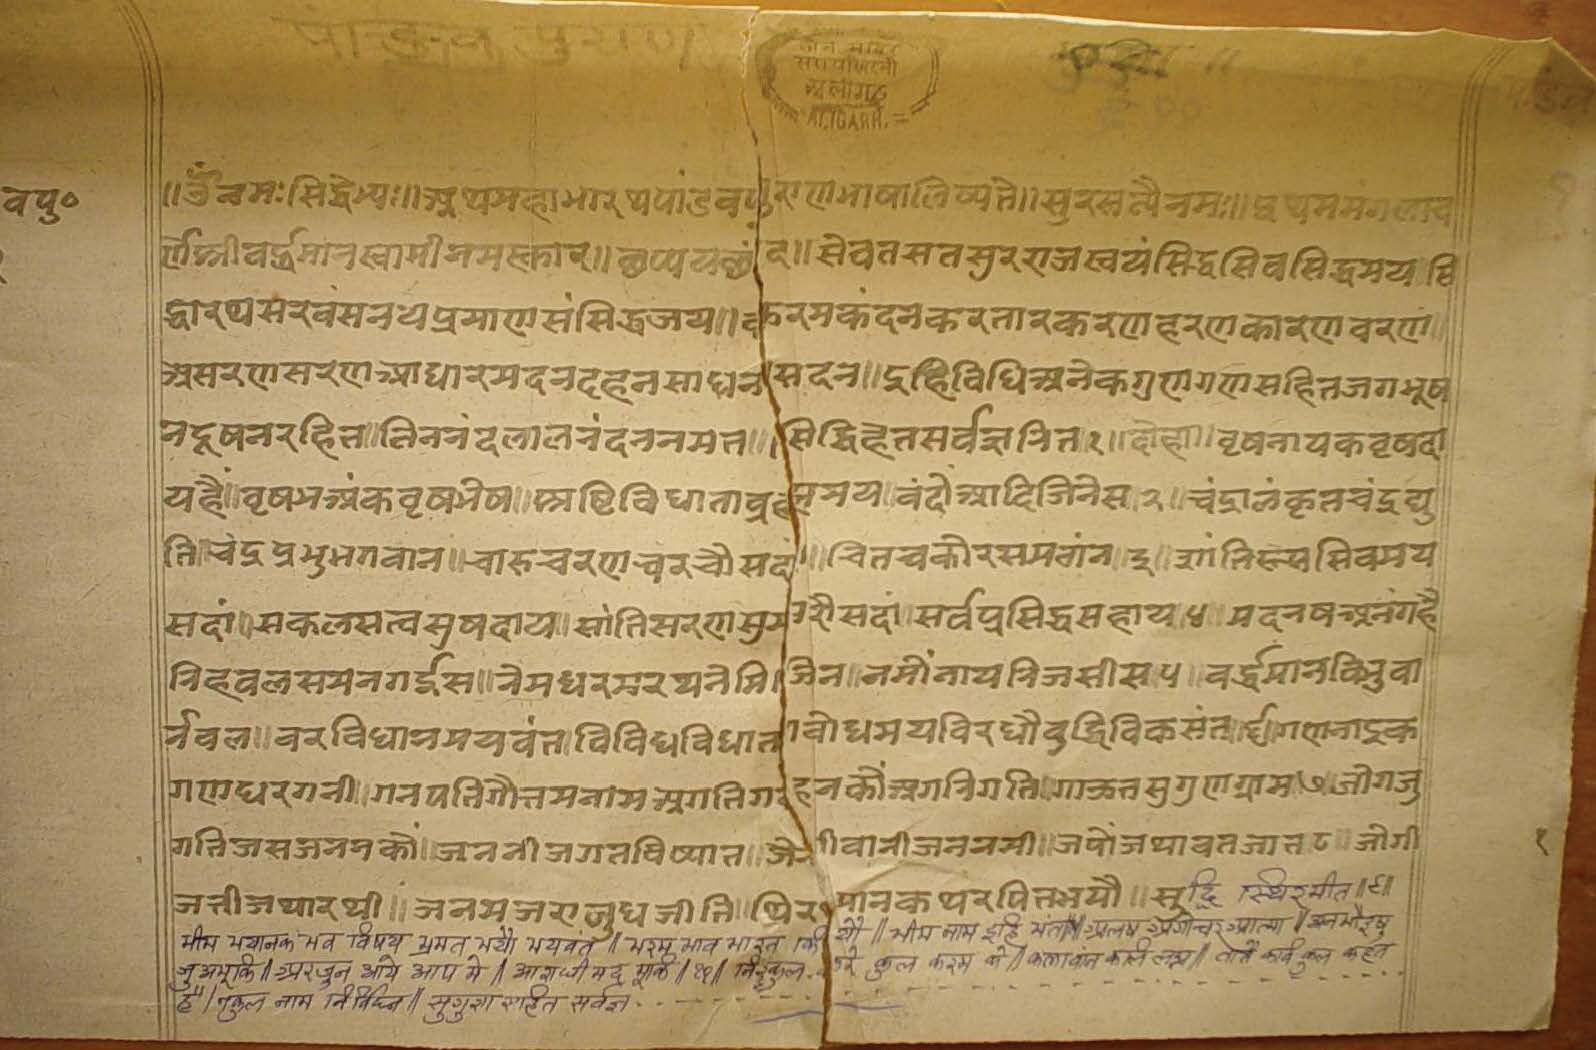 पांडव पुराण
जैन मंदिर
अलीगढ
ALIGARH.
वपु०
॥ॐ नमः सिद्धेभ्यः॥ अथ महाभारथ पांडव पुराण भाषा लिष्यते॥ सुरसत्यै नमः॥ प्रथम मंगलाच
र्ण श्री वर्द्धमान स्वामी नमस्कार॥ छप्पय छंद॥ सेवत सत सुरराज स्वयं सिद्ध सिव सिद्धमय सि
द्धारथ सरवंस नय प्रमाण संसिद्ध जय॥ करम कंदन करतार करण हरण कारण चरण॥
असरण सरण आधार मदन दहन साधन सदन॥ इहि विधि अनेक गुण गण सहित जग भूष
न दूषन रहित॥ तिन नंदलाल नंदन नमत॥ सिद्धि हेत सर्वज्ञ नित १॥ दोहा॥ वृष नायक वृष दा
य है॥ वृषभ अंक वृष भेष॥ स्रष्टि विधाता ब्रह्ममय वंदौ आदि जिनेस २॥ चंद्रालंकृत चंद्र द्यु
ति॥ चंद्र प्रभु भगवान॥ चारु चरण चरचौ सदां॥ चित चकोर सम वांन ३ शांति रूप सिवमय
सदां॥ सकल सत्व सुषदाय॥ सांति सरण सुमरौ सदां॥ सर्व प्रसिद्ध सहाय ४ मदन अनंग है
निहवल समन गईस॥ नेम धरम रथ नेमि जिन॥ नमों नाय निज सीस ५ वर्द्धमान
र्नवल॥ वर विधानमयवंत॥ विविध विधाता वोधमय विरधौ वुद्धि विकसंत ६॥ गणनाइक
गणधर गनी॥ गनपति गौतम नाम अगति गहन कौं अगनि गति॥ गाऊत सुगुण ग्राम ७ जोग जु
गति जस जनम कौं॥ जननी जगत विष्यात॥ जैनी वानी जन नमी॥ जपों जथावत जात ८ जोगी
जती जथारथी॥ जनम जरा जुध जीति॥ थिर थानक थर थित भयौ॥ सुद्धि स्थिर मीत॥९॥
भीम भयानक भव विषय भ्रमत भयौ भयवंत॥ भरम भाव भारत कि॥ भीम नाम इहि मंत॥
अरजुन आये आप में॥ ॥११॥ कुल करम के॥ कहत
है॥ नकुल नाम निर्विघ्न॥ सहित सर्वज्ञ
१